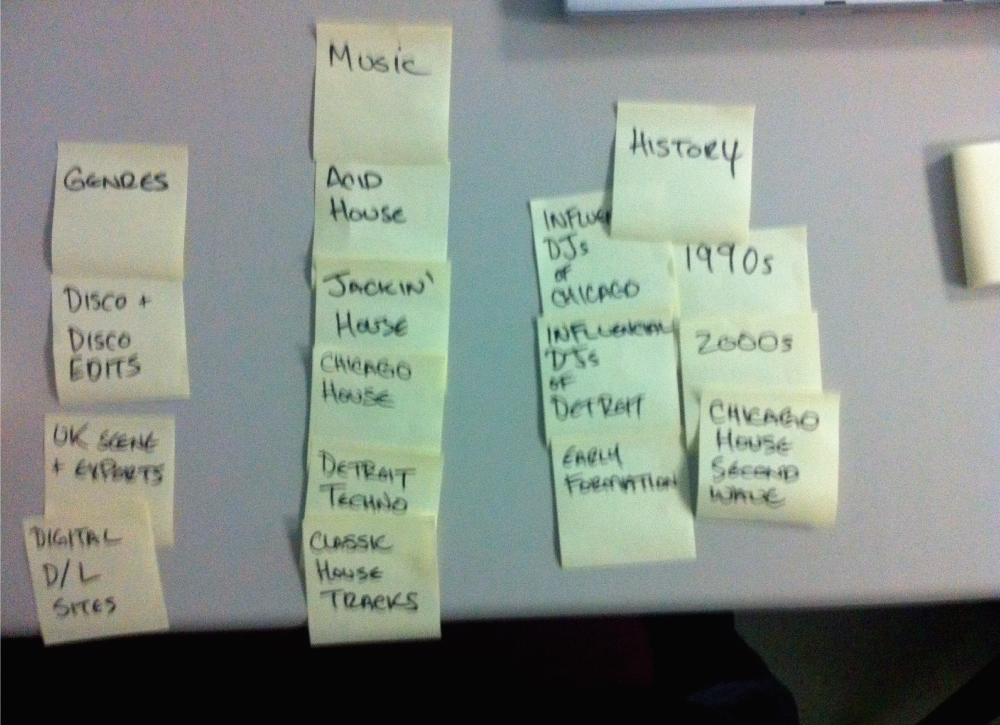 GENRES
DISCO +
DISCO
EDITS
UK SCENE
+ EXPORTS
DIGITAL
D/L
SITES
MUSIC
ACID
HOUSE
JACKIN'
HOUSE
CHICAGO
HOUSE
DETROIT
TECHNO
CLASSIC
HOUSE
TRACKS
HISTORY
INFLUEN
DJs
OF
CHICAGO
INFLUENCIAL
DJs
OF
DETROIT
EARLY
FORMATION
1990s
2000s
CHICAGO
HOUSE
SECOND
WAVE